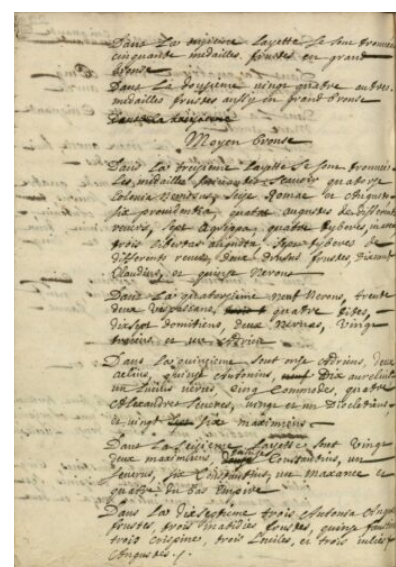 Dans La onzieme Layette se sont trouvées
cinquante medailles frustes en grand
bronse
Dans La douzieme vingt quatre autres
medailles frustes aussy en grand bronse
Dans la treizieme
Moyen bronse
Dans La treizieme Layette se sont trouvées
Les medailles suivantes Scavoir quatorze
Colonia Nemausus, Seize Romae et Auguste
six providentia, quatre augustes de differents
revers, Sept Agrippa, quatre Tyberes,
trois Libertas augusta, Sept tyberes de
differents revers, deux drusus frustes, dix
Claudius, et quinze Nerons
Dans La quatorzieme neuf Nerons, trente
deux Vespasiens, quatre Tites,
dixsept domitiens, deux Nervas, Vingt
trajans et un Adrien
Dans La quinzieme sont onze Adriens, deux
aelius, quinze Antonins, Dix aureliens
un Lucius verus Cinq Commodes, quatre
Alexandres Severes, vingt et un Diocletiens,
et vingt six maximiens
Dans La seizieme Layette sont Vingt
deux maximiens, Constantins, un
Severus, six Constantins, un maxance et
quatre du bas Empire
Dans La dixseptieme trois Antonia Aug.
frustes, trois matidies frustes, quinze faustines
trois crispines, trois Luciles, et trois iulies
Augustes ./.